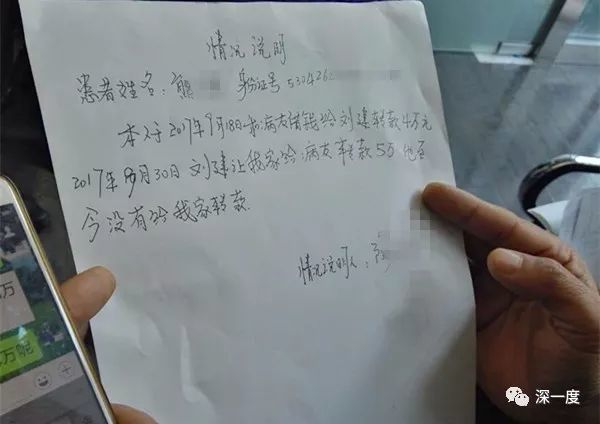 情况说明
患者姓名：熊 身份证号 530426
本人于2017年9月18日和病友借钱给刘建转款4万元
2017年9月30日刘建让我家给病友转款5万他至
今没有给我家转款
情况说明人：
万
万呢
深一度